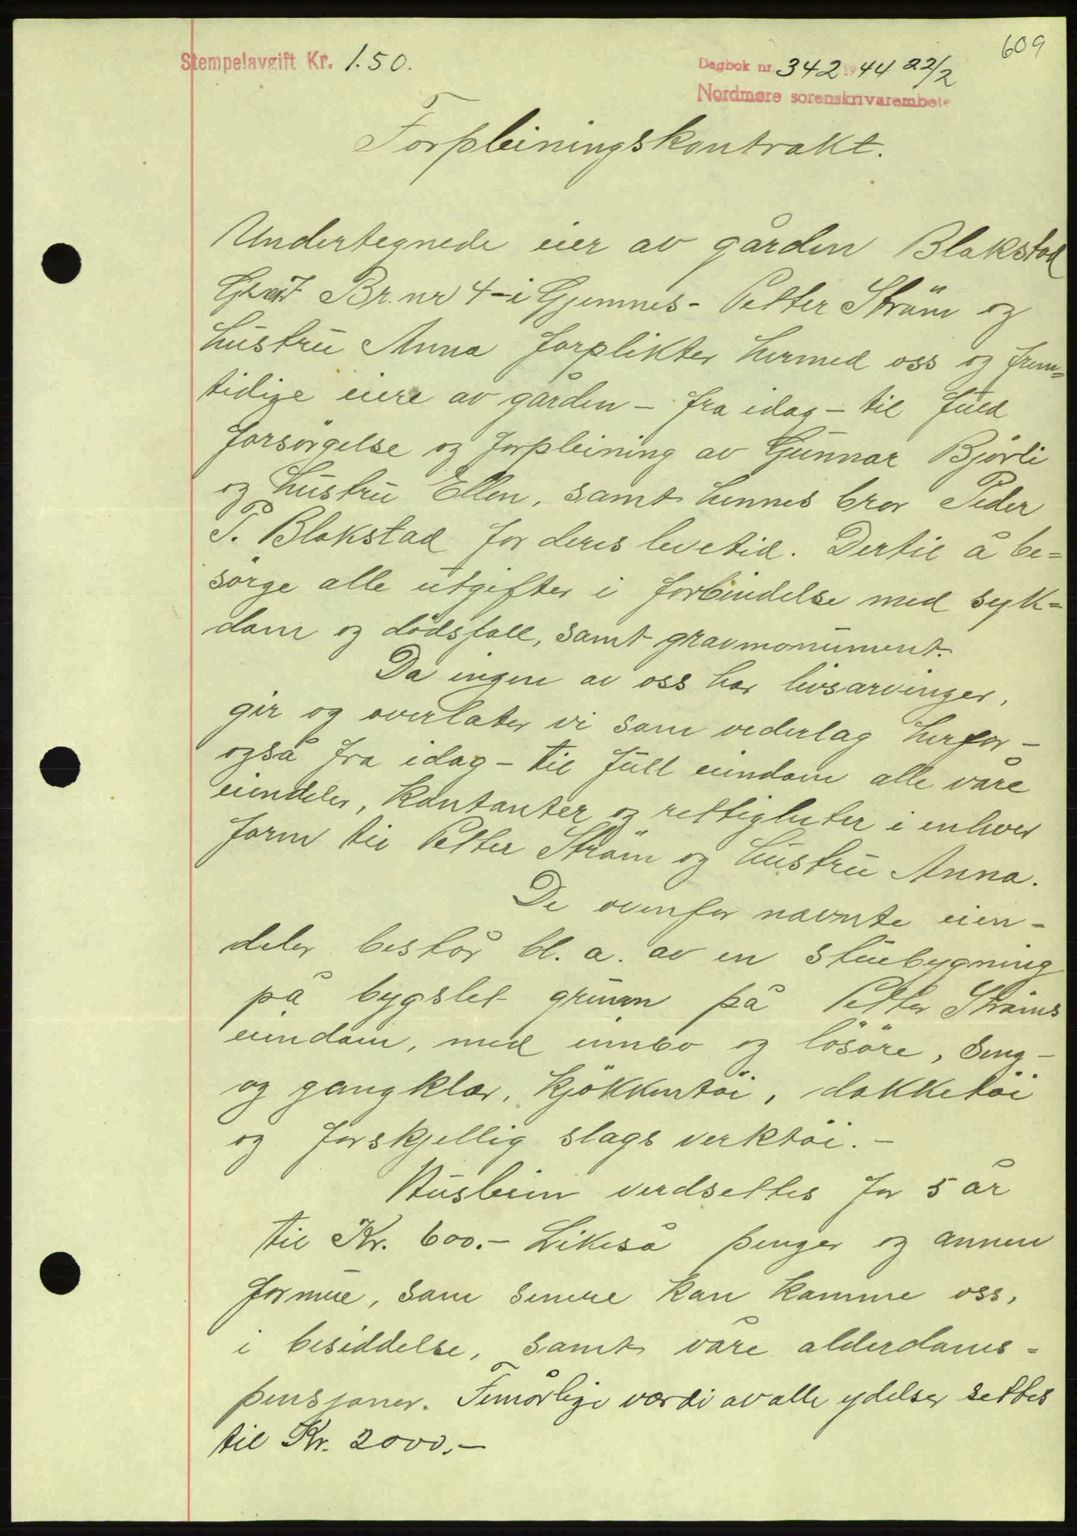 609
Stempelavgift Kr. 1.50.
Dagbok nr. 342 1944 22/2
Nordmøre sorenskrivarembete
Forpleiningskontrakt.
Undertegnede eier av gården Blakstad
Br. nr 4 - i Gjemnes - Petter Ström og
hustru Anna forplikter hermed oss og frem=
tidige eiere av gården - fra idag - til full
forsörgelse og forpleining av Gunnar Bjørli
og hustru Ellen, samt hennes bror Peder
P. Blakstad for deres levetid. Dertil å be=
sörge alle utgifter i forbindelse med syk=
dom og dödsfall, samt gravmonument.
Da ingen av oss har livsarvinger,
gir og overlater vi som vederlag herfor -
også fra idag - til full eiendom alle våre
eiendeler, kontanter og rettigheter i enhver
form til Petter Ström og hustru Anna.
De ovenfor nævnte eien-
deler består bl. a. av en stuebygning
på bygslet grunn på Petter Ströms
eiendom, med innbo og lösöre, seng-
og gangklær, kjökkentöi, dekketöi
og forskjellig slags verktöi. -
Husleien verdsettes for 5 år
til Kr. 600.- Likeså penger og annen
formue, som senere kan komme oss,
i besiddelse, samt våre alderdoms-
pensjoner. Femårlige værdi av alle ydelser settes
til Kr. 2000.-